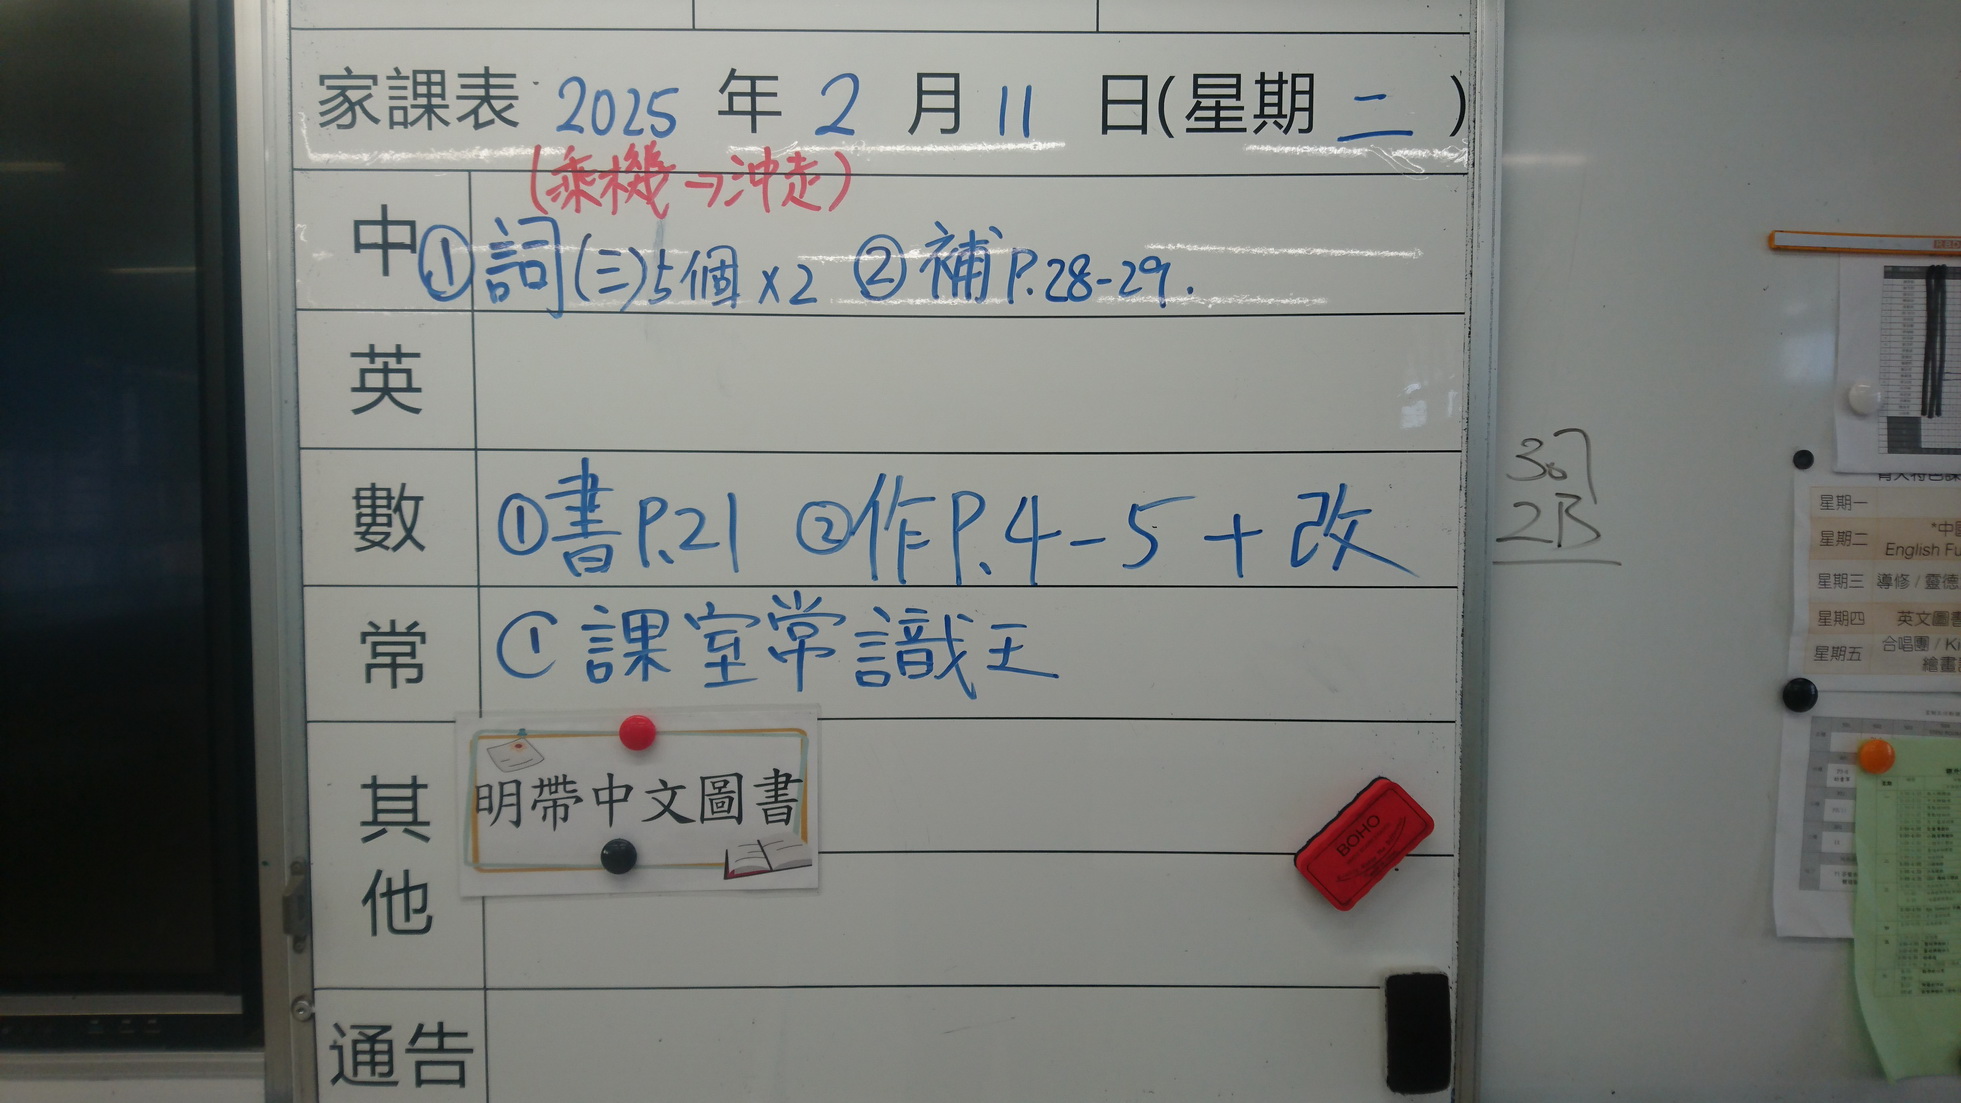 家課表 2025 年 2 月 11 日(星期 二 )
(乘機→沖走)
中 ①詞(三)5個 x2 ②補P.28-29.
英
數 ①書P.21 ②作P.4-5+改
常 ①課室常識王
其他
明帶中文圖書
BOHO
通告
2B
星期一
星期二
English Fu
星期三 導修 / 靈德
星期四 英文圖書
星期五 合唱團 / Ki